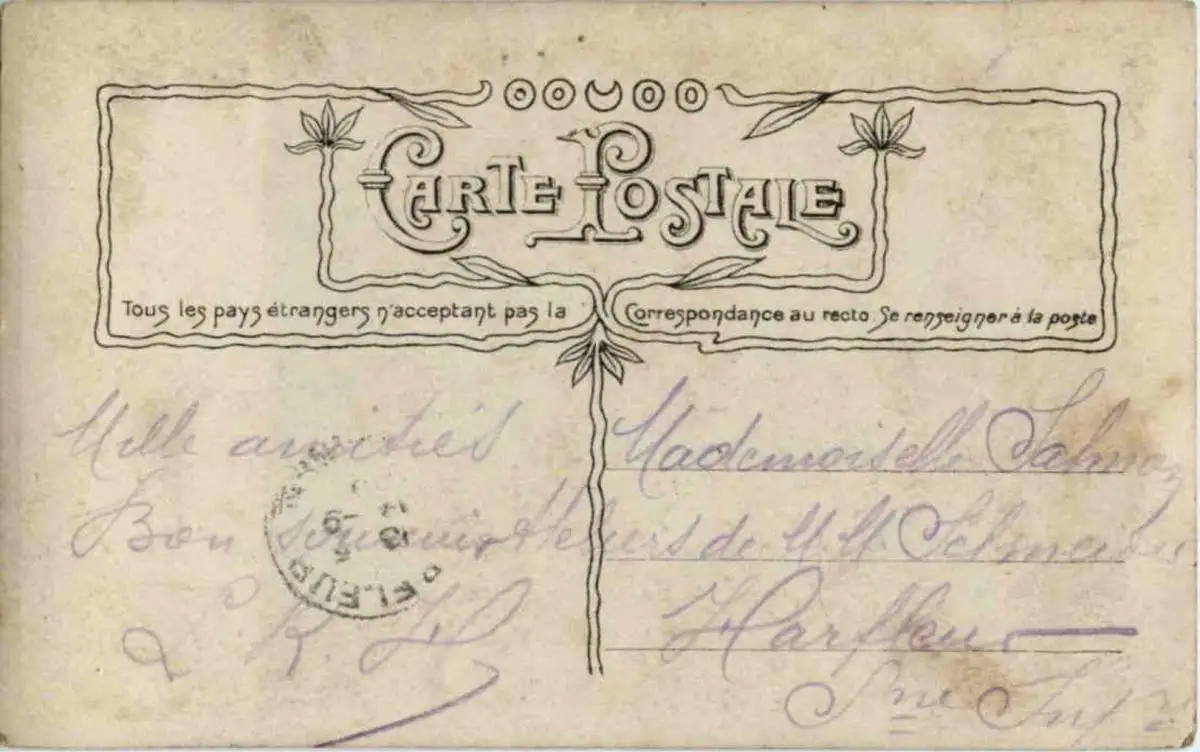 CARTE POSTALE
Tous les pays étrangers n'acceptant pas la Correspondance au recto Se renseigner à la poste
Mille amitiés
Bon souvenir
FLEUR
Mademoiselle Salmon
Ateliers de MM Schneider
Harfleur
Sne Infre